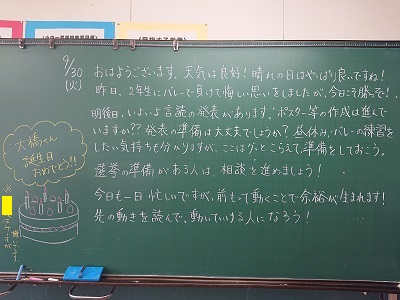 9/30
(火)
おはようございます。天気は良好！晴れの日はやっぱり良いですね！
昨日、2年生にバレーで負けて悔しい思いをしましたが、今日こそ勝って！、
明後日、いよいよ言読の発表があります。ポスター等の作成は進んで
いますか？？発表の準備は大丈夫でしょうか？昼休み、バレーの練習を
したい気持ちも分かりますが、ここはグッとこらえて準備をしておこう。
選挙の準備がある人は、相談を進めましょう！
今日も一日忙しいですが、前もって動くことで余裕が生まれます！
先の動きを読んで、動いていける人になろう！
大橋くん
誕生日
おめでとう!!